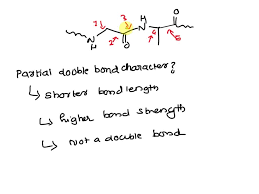 1 3 H O
N H 2 O N 4 5
Partial double bond character?
↳ Shorter bond length
↳ higher bond strength
↳ Not a double bond